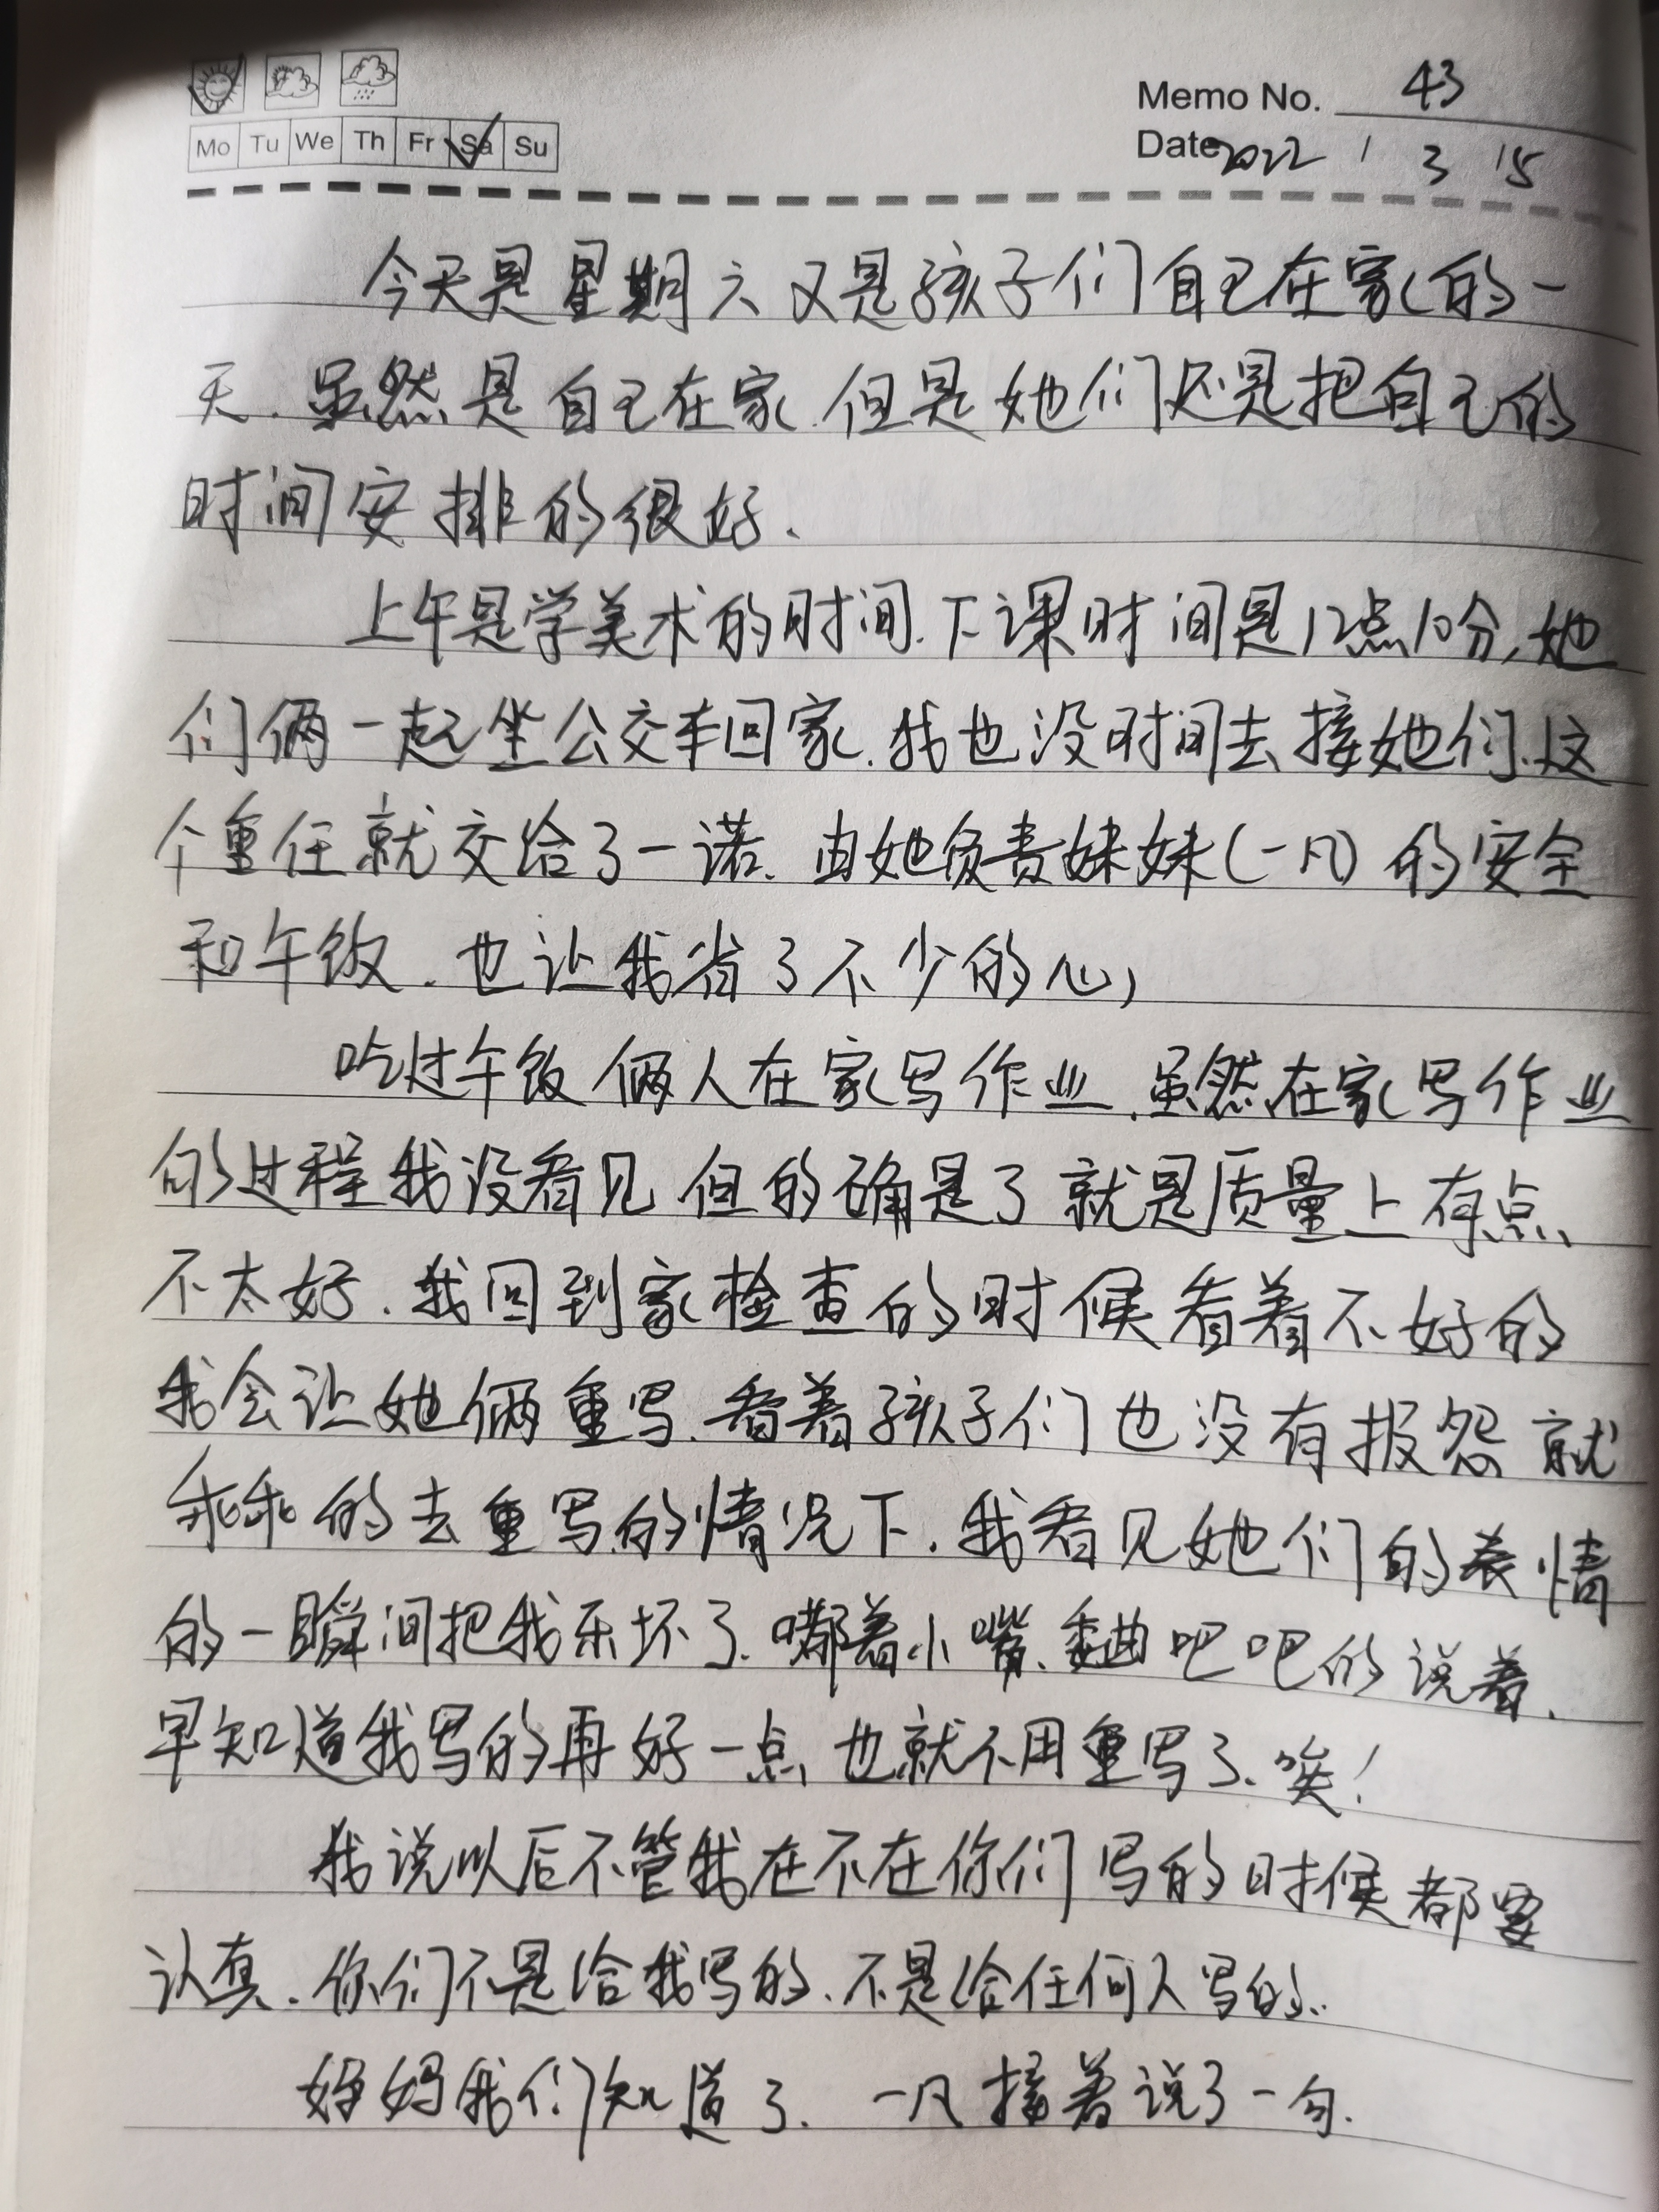 Memo No. 43
Mo Tu We Th Fr Sa Su
Date 2022 / 3 15
今天是星期六又是孩子们自己在家的一
天.虽然是自己在家.但是她们还是把自己的
时间安排的很好.
上午是学美术的时间.下课时间是12点10分,她
们俩一起坐公交车回家.我也没时间去接她们.这
个重任就交给了一诺.由她负责妹妹(一凡)的安全
和午饭.也让我省了不少的心,
吃过午饭俩人在家写作业.虽然在家写作业
的过程我没看见但的确是了就是质量上有点
不太好.我回到家检查的时候看着不好的
我会让她俩重写.看着孩子们也没有报怨就
乖乖的去重写的情况下.我看见她们的表情
的一瞬间把我乐坏了.嘟着小嘴.委曲吧吧的说着.
早知道我写的再好一点也就不用重写了.唉!
我说以后不管我在不在你们写的时候都要
认真.你们不是给我写的.不是给任何人写的..
妈妈我们知道了.一凡接着说了一句.